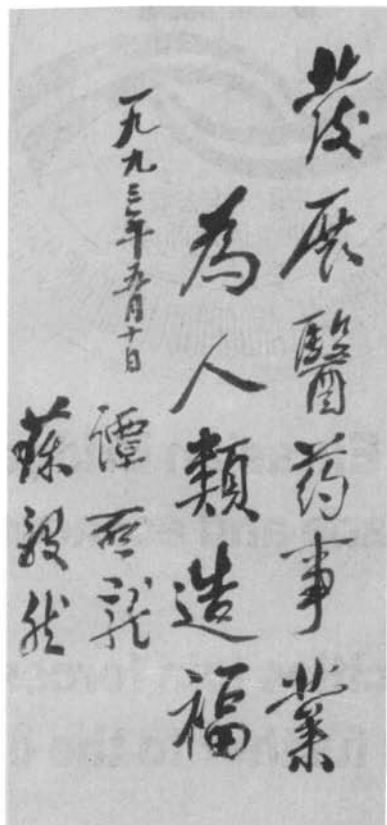 發展醫药事業
為人類造福
一九九三年五月十日
譚启龍
蘇毅然